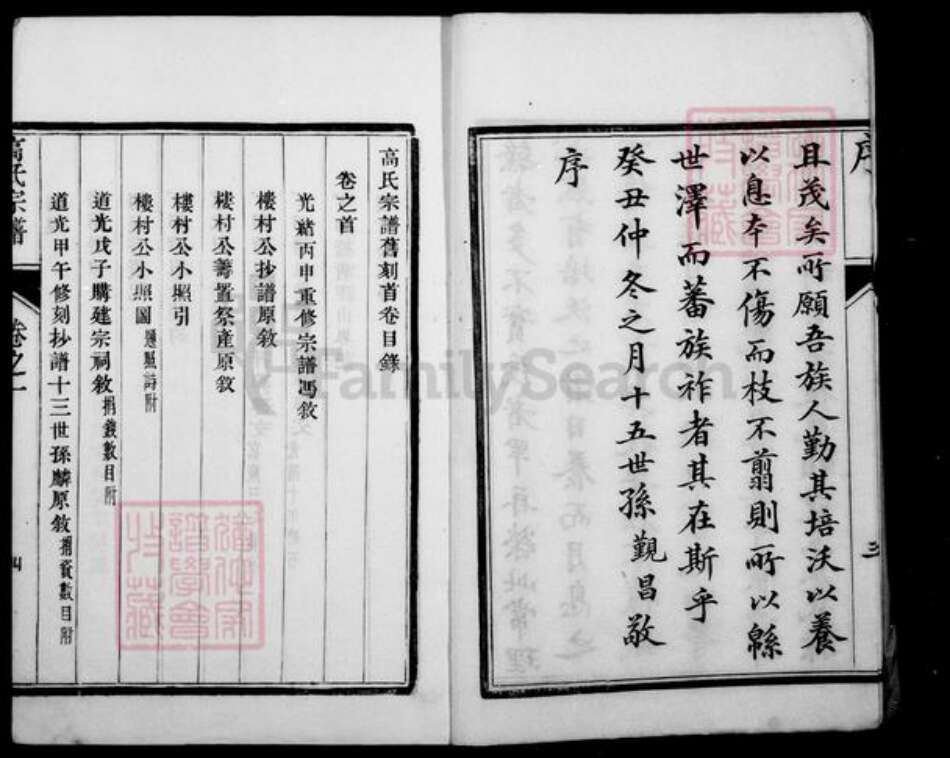 序
三
且茂矣所願吾族人勤其培沃以養
以息本不傷而枝不翦則所以緜
世澤而蕃族祚者其在斯乎
癸丑仲冬之月十五世孫觀昌敬
序
高氏宗譜舊刻首卷目錄
卷之首
光緒丙申重修宗譜馮敘
樓村公抄譜原敘
樓村公籌置祭產原敘
樓村公小照引
樓村公小照圖 題照詩附
道光戊子購建宗祠敘 捐錢數目附
道光甲午修刻抄譜十三世孫麟原敘 捐資數目附
高氏宗譜
卷之一
四
FamilySearch